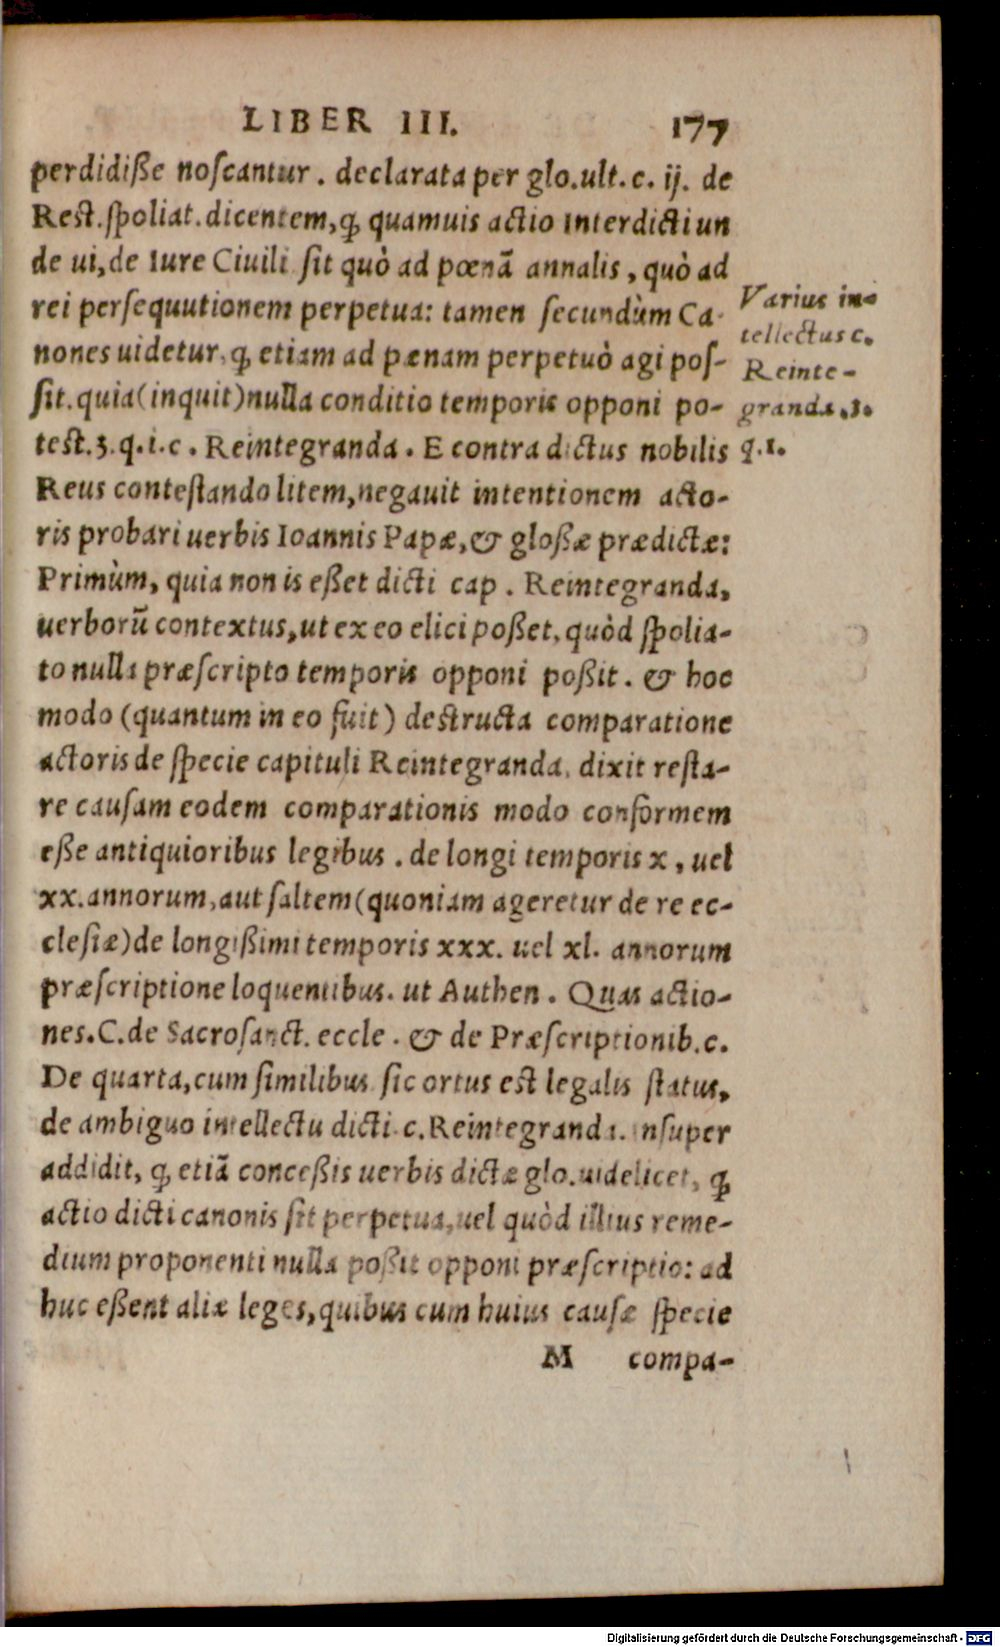 LIBER III. 177
perdidiße noſcantur . declarata per glo.ult.c. ij. de
Reſt.ſpoliat.dicentem,ꝙ quamuis actio interdicti un
de ui,de Iure Ciuili ſit quò ad pœnã annalis , quò ad
rei perſequutionem perpetua: tamen ſecundùm Ca-
nones uidetur, ꝙ etiam ad pœnam perpetuò agi poſ-
ſit.quia(inquit)nulla conditio temporis opponi po-
teſt.3.q.i.c . Reintegranda . E contra dictus nobilis
Reus conteſtando litem,negauit intentionem acto-
ris probari uerbis Ioannis Papæ,& gloßæ prædictæ:
Primùm, quia non is eßet dicti cap . Reintegranda,
uerborũ contextus,ut ex eo elici poßet, quòd ſpolia-
to nulla præſcripto temporis opponi poßit . & hoc
modo (quantum in eo fuit) deſtructa comparatione
actoris de ſpecie capituli Reintegranda, dixit reſta-
re cauſam eodem comparationis modo conformem
eße antiquioribus legibus . de longi temporis x , uel
xx.annorum,aut ſaltem(quoniam ageretur de re ec-
cleſiæ)de longißimi temporis xxx. uel xl. annorum
præſcriptione loquentibus. ut Authen . Quas actio-
nes.C.de Sacroſanct. eccle . & de Præſcriptionib.c.
De quarta,cum ſimilibus ſic ortus eſt legalis ſtatus,
de ambiguo intellectu dicti c.Reintegranda. inſuper
addidit, ꝙ etiã conceßis uerbis dictæ glo.uidelicet, ꝙ
actio dicti canonis ſit perpetua,uel quòd illius reme-
dium proponenti nulla poßit opponi præſcriptio: ad
huc eßent aliæ leges,quibus cum huius cauſæ ſpecie
M compa-
Varius in-
tellectus c.
Reinte-
granda.3.
q.1.
Digitalisierung gefördert durch die Deutsche Forschungsgemeinschaft - DFG